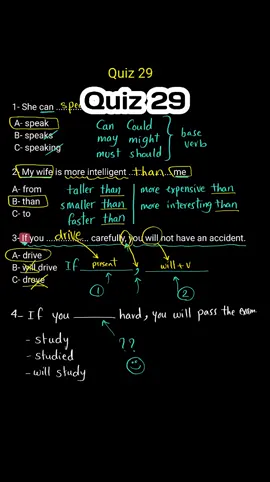 Quiz 29
Quiz 29
1- She can ...spe
A- speak
B- speaks
C- speaking
Can Could
may might
must should
base
verb
2- My wife is more intelligent ...than... me
A- from
B- than
C- to
taller than
smaller than
faster than
more expensive than
more interesting than
3- If you ...drive... carefully, you will not have an accident.
A- drive
B- will drive
C- drove
If present , will + v
1
2
4- If you ____ hard, you will pass the exam
- study
- studied
- will study
??